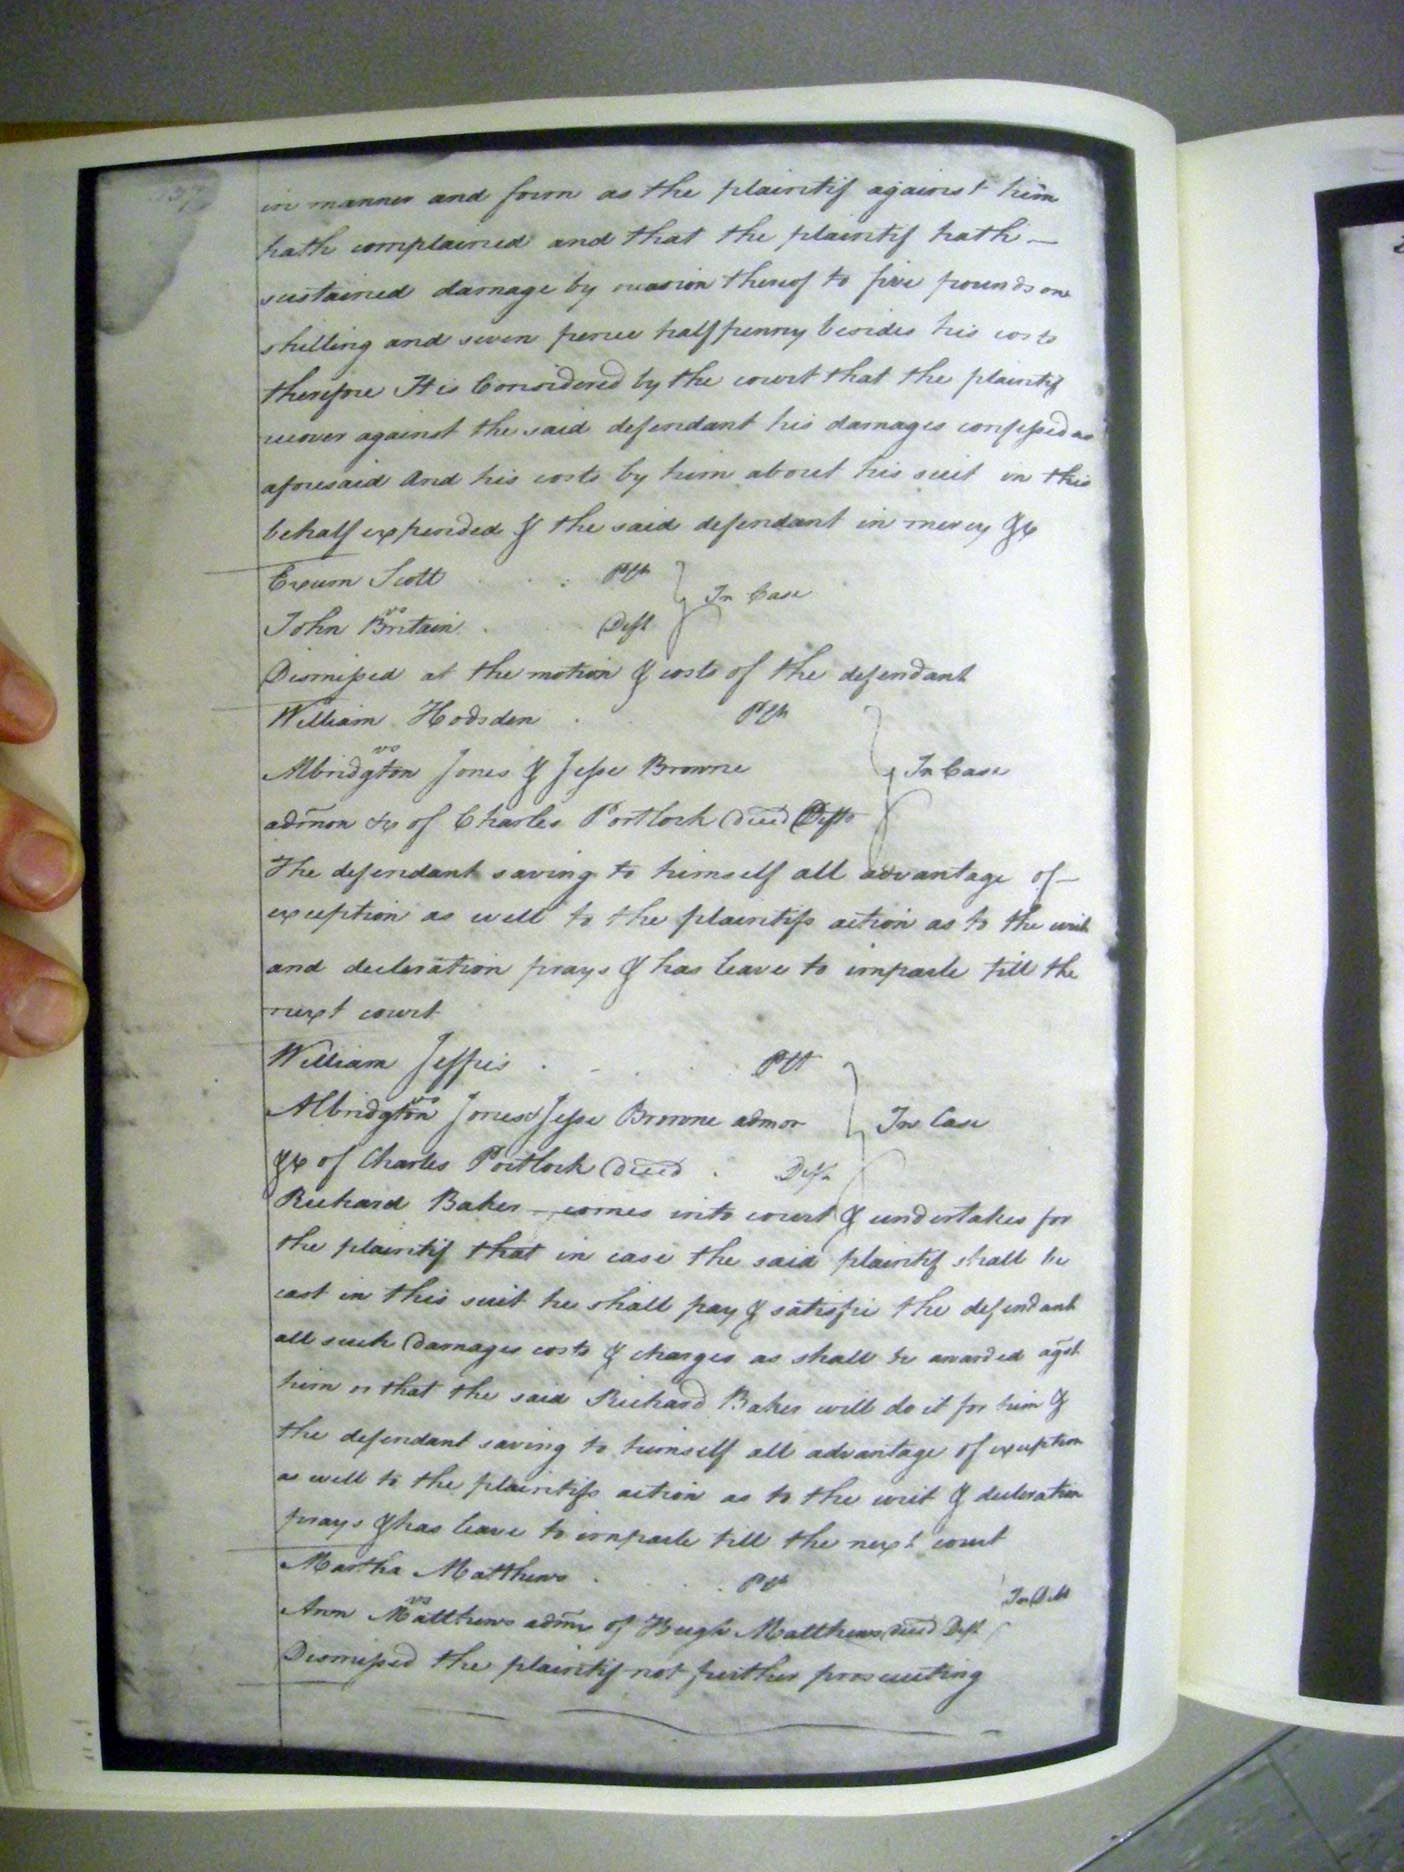 in manner and form as the plaintif against him
hath complained and that the plaintif hath —
sustained damage by occasion thereof to five pounds one
shilling and seven pence half penny besides his costs
therefore It is Considered by the court that the plaintif
recover against the said defendant his damages confessed as
aforesaid And his costs by him about his suit in this
behalf expended & the said defendant in mercy &c
Exum Scott . . . Plt
vs } In Case
John Britain . Deft
Dismissed at the motion & costs of the defendant
William Hodsden . Plt
vs
Albridgton Jones & Jesse Browne } In Case
admon &c of Charles Portlock decd Defts
The defendant saving to himself all advantage of —
exception as well to the plaintifs action as to the writ
and declaration prays & has leave to imparle till the
next court
William Jeffris . . . Plt
vs
Albridgton Jones & Jesse Browne admor } In Case
&c of Charles Portlock decd . Deft
Richard Baker comes into court & undertakes for
the plaintif that in case the said plaintif shall be
cast in this suit he shall pay & satisfie the defendant
all such damages costs & charges as shall be awarded agst
him or that the said Richard Baker will do it for him &
the defendant saving to himself all advantage of exception
as well to the plaintifs action as to the writ & declaration
prays & has leave to imparle till the next court
Martha Matthews . . . Plt
vs } In Debt
Ann Matthews admx of Hugh Matthews decd Deft
Dismissed the plaintif not further prosecuting